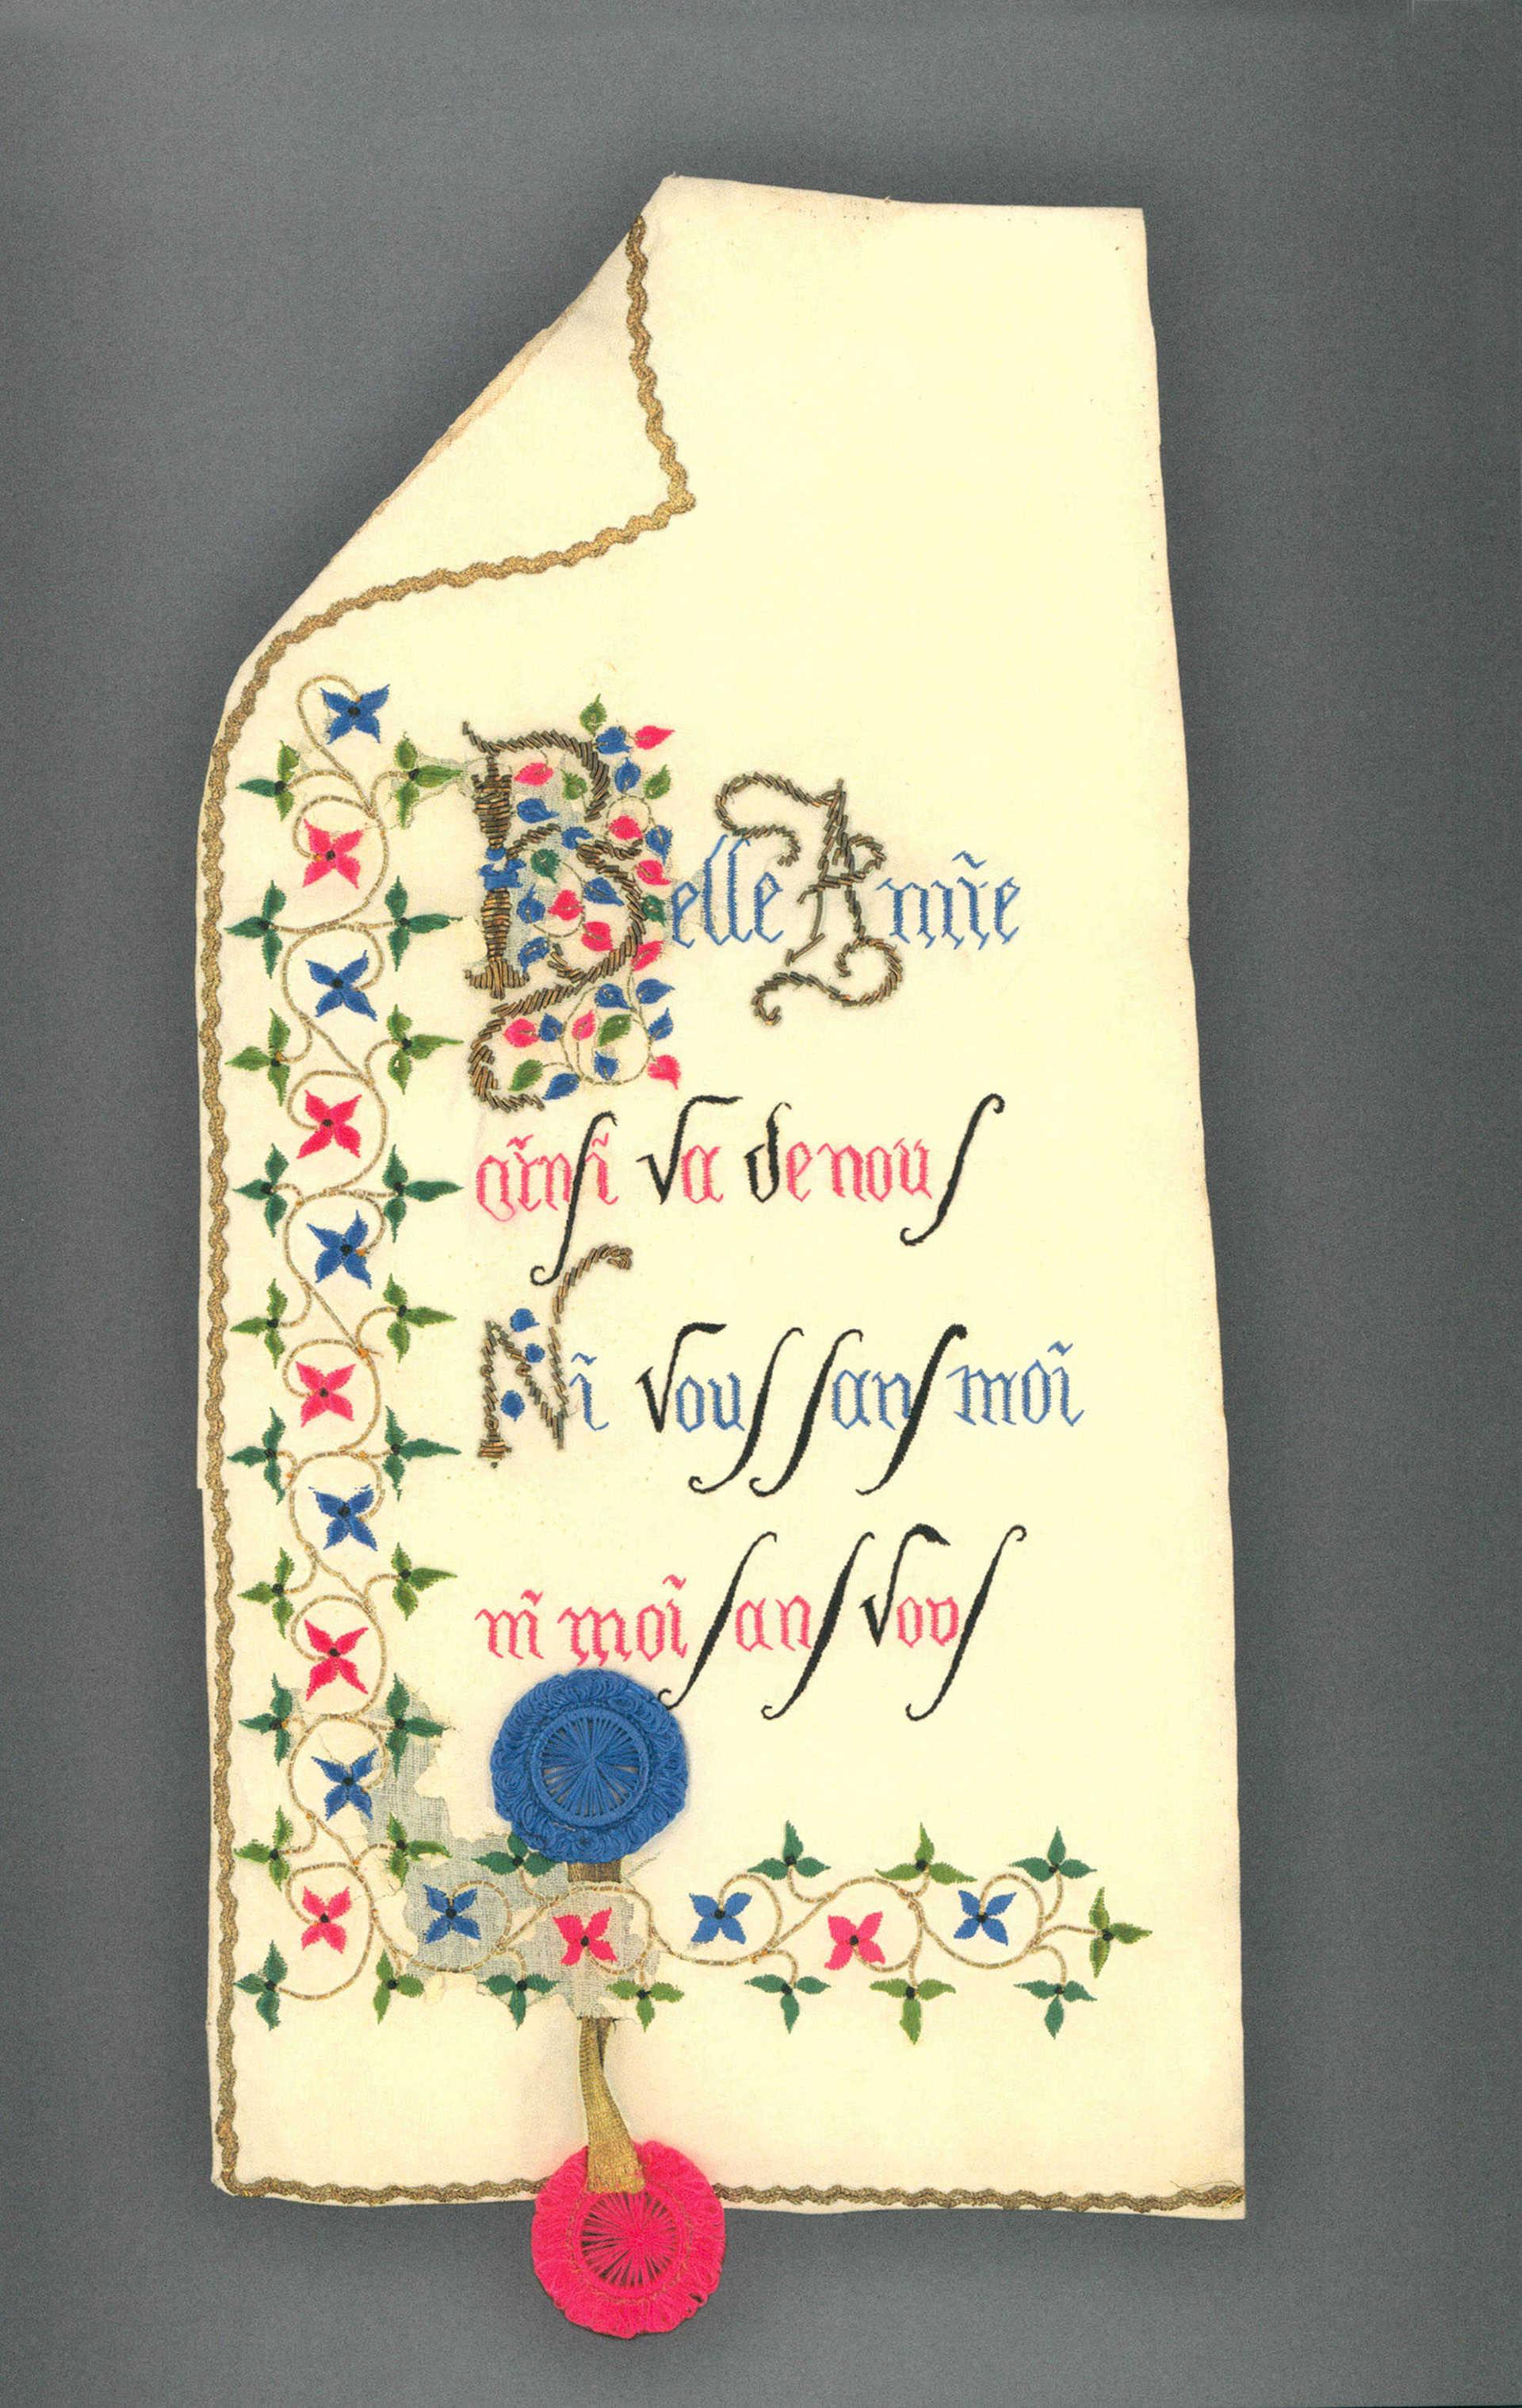 Belle Amie
ainsi va de nous
Ni vous sans moi
ni moi sans vous